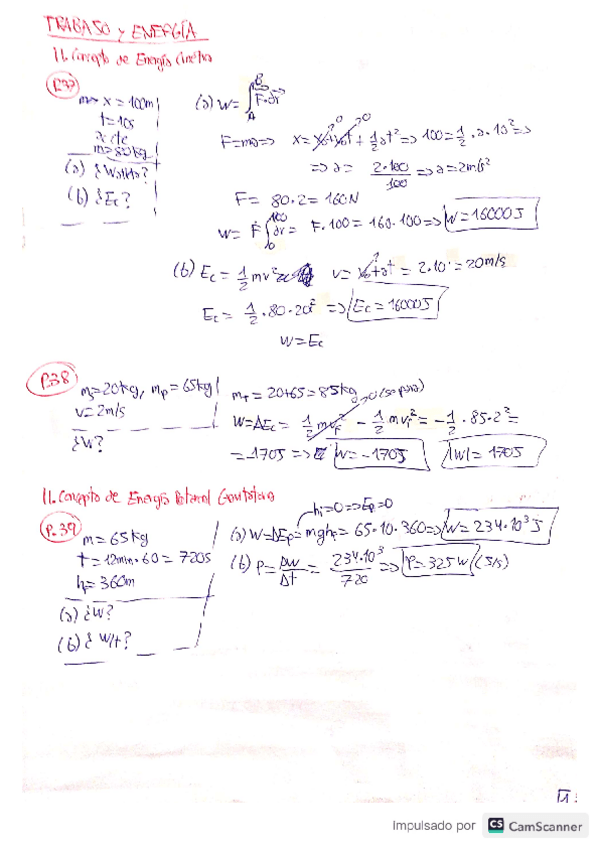 TRABAJO y ENERGÍA
11. Concepto de Energía Cinética
P.37
x = 100m
t = 10s
m = 80kg
(a) ¿W?
(b) ¿Ec?
(a) W = ∫_A^B F·dr
F = ma => x = x₀ + v₀t + 1/2 at² => 100 = 1/2 · a · 10² =>
=> a = 2·100/100 => a = 2m/s²
F = 80·2 = 160N
W = F ∫_0^100 dr = F·100 = 160·100 => W = 16000J
(b) Ec = 1/2 mv² v = v₀ + at = 2·10 = 20m/s
Ec = 1/2 · 80 · 20² => Ec = 16000J
W = Ec
P.38
m = 20kg, mp = 65kg
v = 2m/s
¿W?
mT = 20+65 = 85kg
W = ΔEc = 1/2 mv² - 1/2 mv² = -1/2 · 85·2² =
= -170J => W = -170J |W| = 170J
11. Concepto de Energía Potencial Gravitatoria
P.39
m = 65kg
t = 12min·60 = 720s
h = 360m
(a) ¿W?
(b) ¿W/t?
hi=0 => Ep=0
(a) W = ΔEp = mgh = 65·10·360 => W = 234·10³J
(b) P = ΔW/Δt = 234·10³/720 => P = 325W (J/s)
Impulsado por CS CamScanner